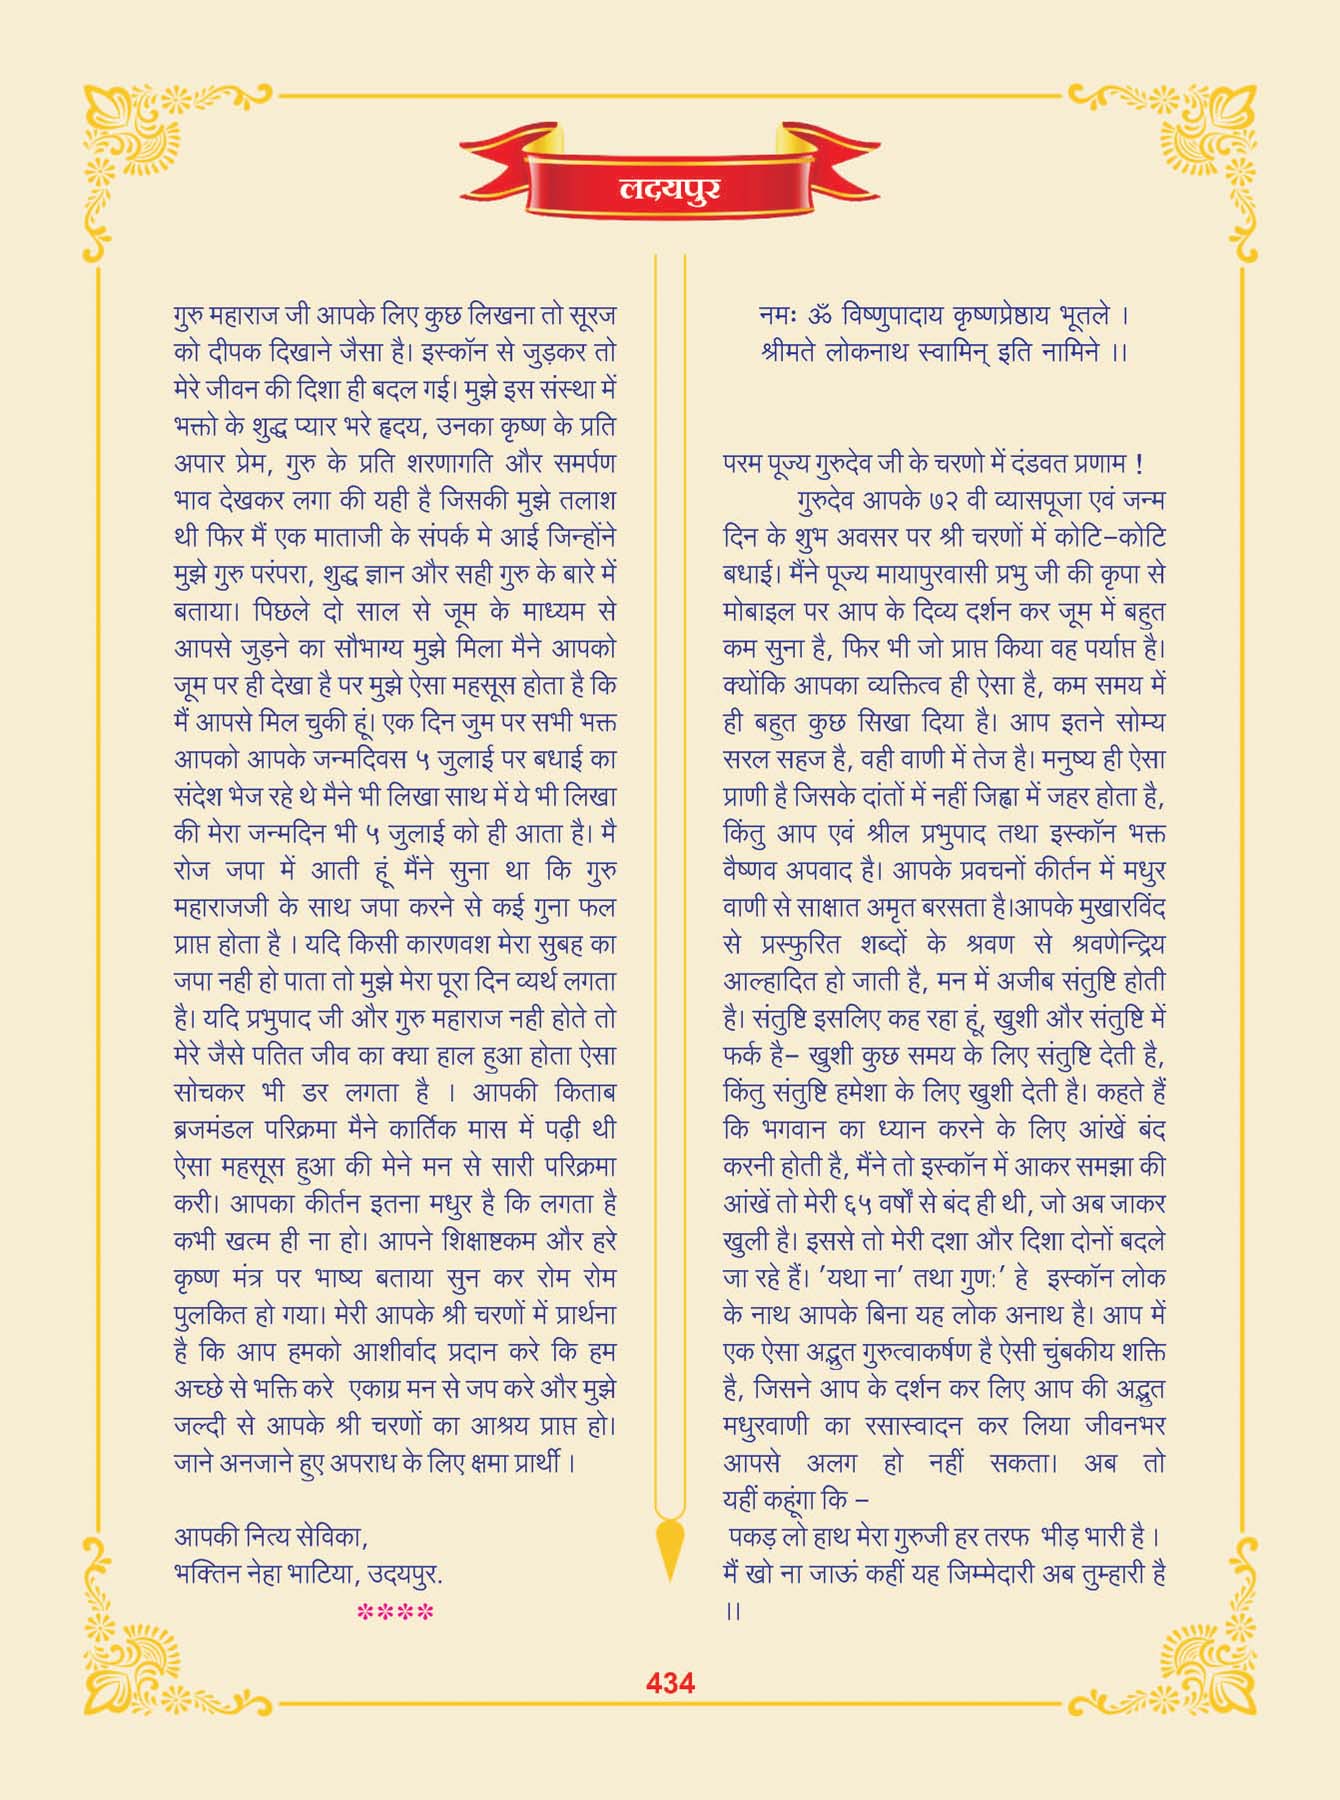 लदयपुर
गुरु महाराज जी आपके लिए कुछ लिखना तो सूरज
को दीपक दिखाने जैसा है। इस्कॉन से जुड़कर तो
मेरे जीवन की दिशा ही बदल गई। मुझे इस संस्था में
भक्तो के शुद्ध प्यार भरे हृदय, उनका कृष्ण के प्रति
अपार प्रेम, गुरु के प्रति शरणागति और समर्पण
भाव देखकर लगा की यही है जिसकी मुझे तलाश
थी फिर मैं एक माताजी के संपर्क मे आई जिन्होंने
मुझे गुरु परंपरा, शुद्ध ज्ञान और सही गुरु के बारे में
बताया। पिछले दो साल से जूम के माध्यम से
आपसे जुड़ने का सौभाग्य मुझे मिला मैने आपको
जूम पर ही देखा है पर मुझे ऐसा महसूस होता है कि
मैं आपसे मिल चुकी हूं। एक दिन जुम पर सभी भक्त
आपको आपके जन्मदिवस ५ जुलाई पर बधाई का
संदेश भेज रहे थे मैने भी लिखा साथ में ये भी लिखा
की मेरा जन्मदिन भी ५ जुलाई को ही आता है। मै
रोज जपा में आती हूं मैंने सुना था कि गुरु
महाराजजी के साथ जपा करने से कई गुना फल
प्राप्त होता है । यदि किसी कारणवश मेरा सुबह का
जपा नही हो पाता तो मुझे मेरा पूरा दिन व्यर्थ लगता
है। यदि प्रभुपाद जी और गुरु महाराज नही होते तो
मेरे जैसे पतित जीव का क्या हाल हुआ होता ऐसा
सोचकर भी डर लगता है । आपकी किताब
ब्रजमंडल परिक्रमा मैने कार्तिक मास में पढ़ी थी
ऐसा महसूस हुआ की मेने मन से सारी परिक्रमा
करी। आपका कीर्तन इतना मधुर है कि लगता है
कभी खत्म ही ना हो। आपने शिक्षाष्टकम और हरे
कृष्ण मंत्र पर भाष्य बताया सुन कर रोम रोम
पुलकित हो गया। मेरी आपके श्री चरणों में प्रार्थना
है कि आप हमको आशीर्वाद प्रदान करे कि हम
अच्छे से भक्ति करे एकाग्र मन से जप करे और मुझे
जल्दी से आपके श्री चरणों का आश्रय प्राप्त हो।
जाने अनजाने हुए अपराध के लिए क्षमा प्रार्थी ।
आपकी नित्य सेविका,
भक्तिन नेहा भाटिया, उदयपुर.
****
नमः ॐ विष्णुपादाय कृष्णप्रेष्ठाय भूतले ।
श्रीमते लोकनाथ स्वामिन् इति नामिने ।।
परम पूज्य गुरुदेव जी के चरणो में दंडवत प्रणाम !
गुरुदेव आपके ७२ वी व्यासपूजा एवं जन्म
दिन के शुभ अवसर पर श्री चरणों में कोटि-कोटि
बधाई। मैंने पूज्य मायापुरवासी प्रभु जी की कृपा से
मोबाइल पर आप के दिव्य दर्शन कर जूम में बहुत
कम सुना है, फिर भी जो प्राप्त किया वह पर्याप्त है।
क्योंकि आपका व्यक्तित्व ही ऐसा है, कम समय में
ही बहुत कुछ सिखा दिया है। आप इतने सोम्य
सरल सहज है, वही वाणी में तेज है। मनुष्य ही ऐसा
प्राणी है जिसके दांतों में नहीं जिह्वा में जहर होता है,
किंतु आप एवं श्रील प्रभुपाद तथा इस्कॉन भक्त
वैष्णव अपवाद है। आपके प्रवचनों कीर्तन में मधुर
वाणी से साक्षात अमृत बरसता है।आपके मुखारविंद
से प्रस्फुरित शब्दों के श्रवण से श्रवणेन्द्रिय
आल्हादित हो जाती है, मन में अजीब संतुष्टि होती
है। संतुष्टि इसलिए कह रहा हूं, खुशी और संतुष्टि में
फर्क है- खुशी कुछ समय के लिए संतुष्टि देती है,
किंतु संतुष्टि हमेशा के लिए खुशी देती है। कहते हैं
कि भगवान का ध्यान करने के लिए आंखें बंद
करनी होती है, मैंने तो इस्कॉन में आकर समझा की
आंखें तो मेरी ६५ वर्षों से बंद ही थी, जो अब जाकर
खुली है। इससे तो मेरी दशा और दिशा दोनों बदले
जा रहे हैं। 'यथा ना' तथा गुण:' हे इस्कॉन लोक
के नाथ आपके बिना यह लोक अनाथ है। आप में
एक ऐसा अद्भुत गुरुत्वाकर्षण है ऐसी चुंबकीय शक्ति
है, जिसने आप के दर्शन कर लिए आप की अद्भुत
मधुरवाणी का रसास्वादन कर लिया जीवनभर
आपसे अलग हो नहीं सकता। अब तो
यहीं कहूंगा कि -
पकड़ लो हाथ मेरा गुरुजी हर तरफ भीड़ भारी है ।
मैं खो ना जाऊं कहीं यह जिम्मेदारी अब तुम्हारी है
।।
434